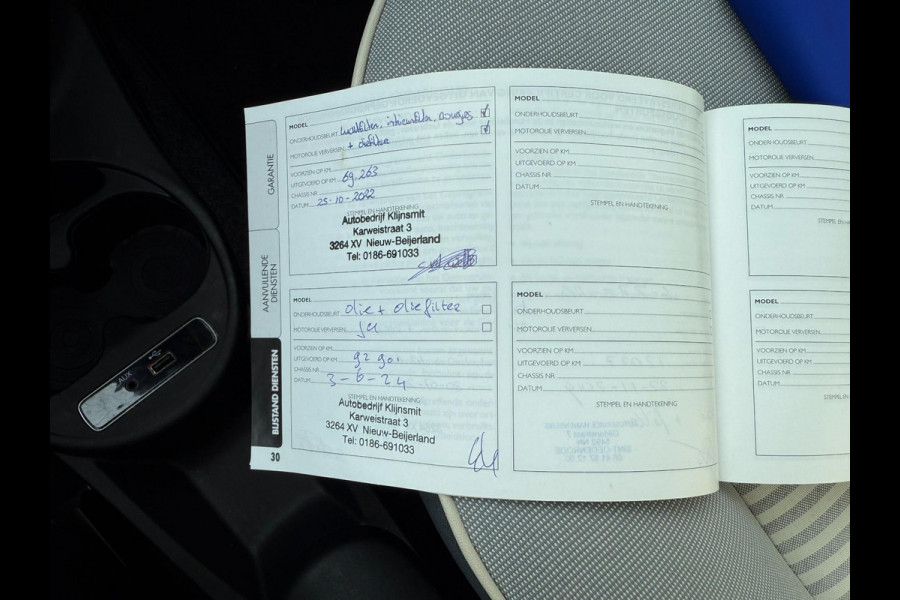 GARANTIE
AANVULLENDE
DIENSTEN
BIJSTAND DIENSTEN
30
MODEL
ONDERHOUDSBEURT luchtfilter, interieurfilter, bougies
MOTOROLIE VERVERSEN + oliefilter
VOORZIEN OP KM
UITGEVOERD OP KM 69.263
CHASSIS NR.
DATUM 25-10-2022
STEMPEL EN HANDTEKENING
Autobedrijf Klijnsmit
Karweistraat 3
3264 XV Nieuw-Beijerland
Tel: 0186-691033
MODEL
ONDERHOUDSBEURT olie + oliefilter
MOTOROLIE VERVERSEN
VOORZIEN OP KM
UITGEVOERD OP KM
CHASSIS NR.
DATUM 3-6-24
STEMPEL EN HANDTEKENING
Autobedrijf Klijnsmit
Karweistraat 3
3264 XV Nieuw-Beijerland
Tel: 0186-691033
MODEL
ONDERHOUDSBEURT
MOTOROLIE VERVERSEN
VOORZIEN OP KM
UITGEVOERD OP KM
CHASSIS NR.
DATUM
STEMPEL EN HANDTEKENING
MODEL
ONDERHOUDSBEURT
MOTOROLIE VERVERSEN
VOORZIEN OP KM
UITGEVOERD OP KM
CHASSIS NR.
DATUM
STEMPEL EN HANDTEKENING
MODEL
ONDERHOUDSBEURT
MOTOROLIE VERVERSEN
VOORZIEN OP KM
UITGEVOERD OP KM
CHASSIS NR.
DATUM
STEMPEL EN
MODEL
ONDERHOUDSBEURT
MOTOROLIE VERVERSEN
VOORZIEN OP KM
UITGEVOERD OP KM
CHASSIS NR.
DATUM
STEMPEL EN
AUX